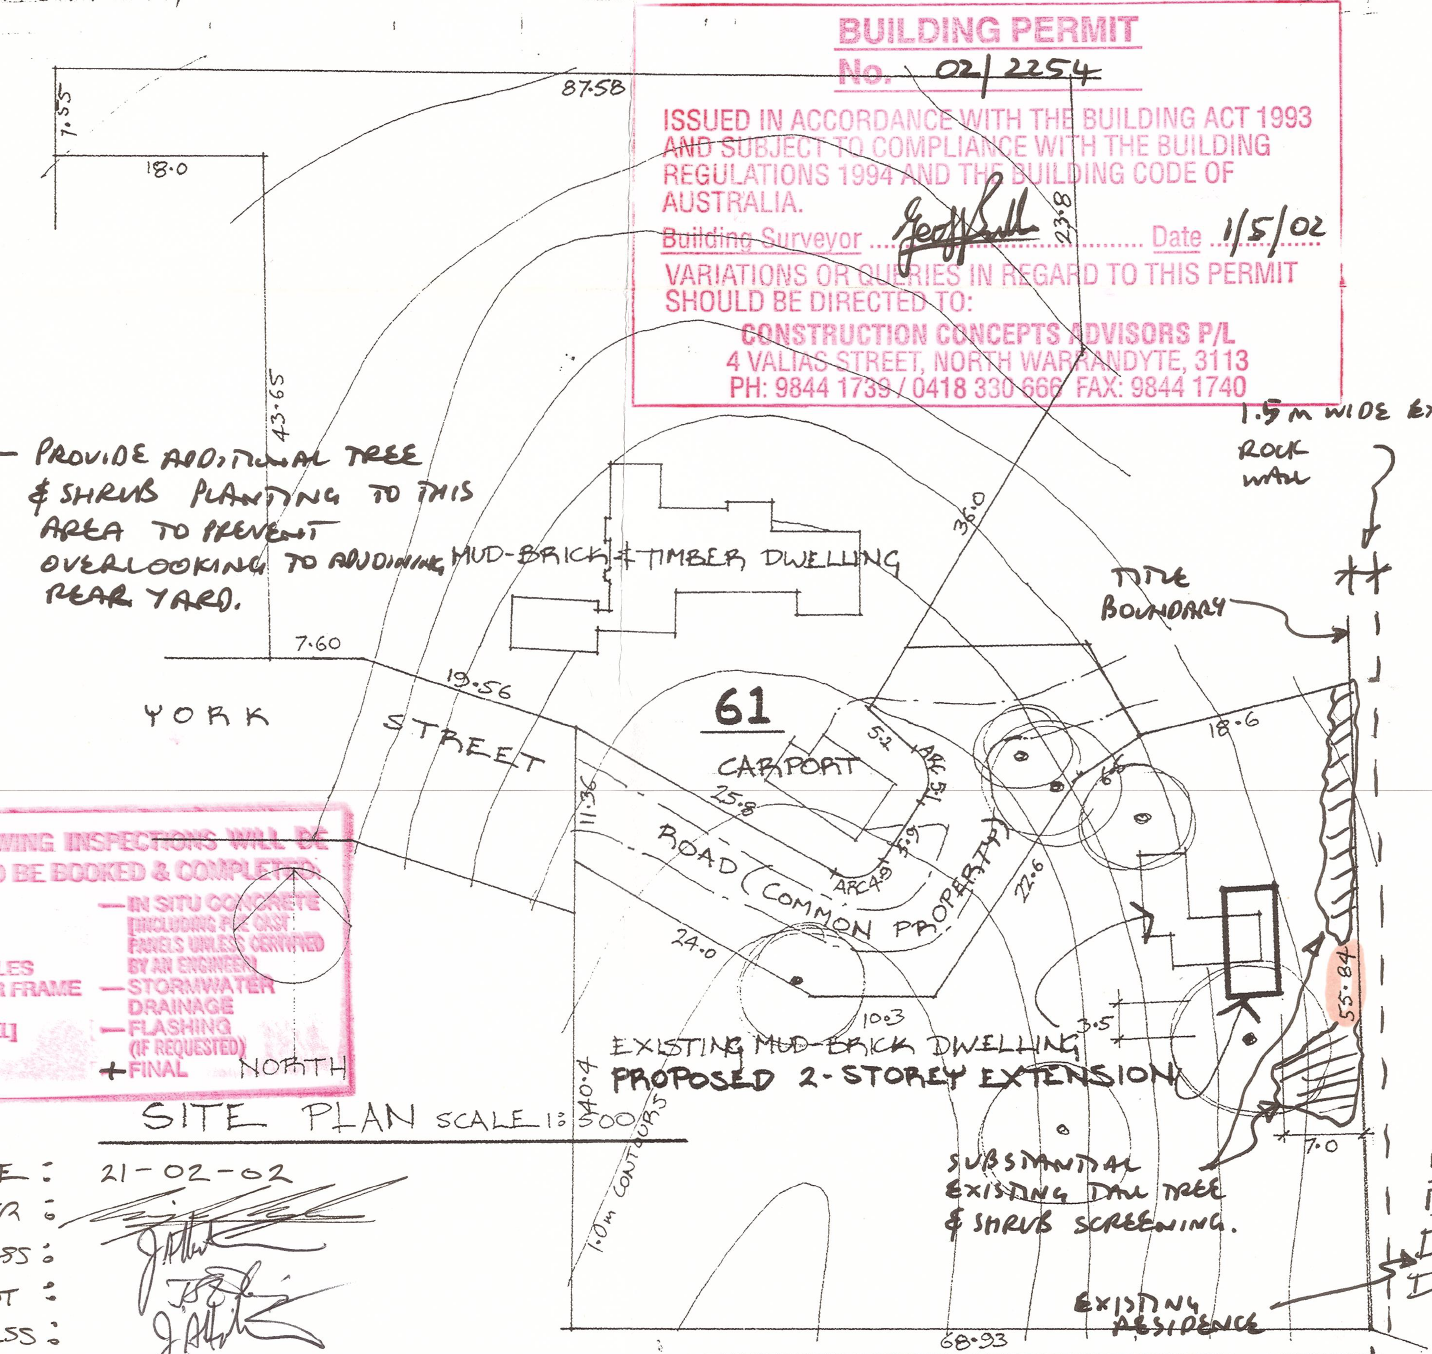 BUILDING PERMIT
No. 02/2254
ISSUED IN ACCORDANCE WITH THE BUILDING ACT 1993
AND SUBJECT TO COMPLIANCE WITH THE BUILDING
REGULATIONS 1994 AND THE BUILDING CODE OF
AUSTRALIA.
Building Surveyor ........ Date 1/5/02
VARIATIONS OR QUERIES IN REGARD TO THIS PERMIT
SHOULD BE DIRECTED TO:
CONSTRUCTION CONCEPTS ADVISORS P/L
4 VALIAS STREET, NORTH WARRANDYTE, 3113
PH: 9844 1739 / 0418 330 666 FAX: 9844 1740
87.58
7.55
18.0
23.8
43.65
1.5M WIDE
ROCK
WALL
- PROVIDE ADDITIONAL TREE
& SHRUB PLANTING TO THIS
AREA TO PREVENT
OVERLOOKING TO ADJOINING
REAR YARD.
MUD-BRICK & TIMBER DWELLING
36.0
TITLE
BOUNDARY
7.60
19.56
YORK STREET
61
CARPORT
5.2
ARC 5.1
18.6
6.6
25.8
11.36
5.9
ARC 4.9
ROAD (COMMON PROPERTY)
22.6
24.0
10.3
3.5
55.84
WING INSPECTIONS WILL BE
BE BOOKED & COMPLETED:
— IN SITU CONCRETE
[INCLUDING PRE CAST
PANELS UNLESS CERTIFIED
BY AN ENGINEER]
LES
R FRAME
— STORMWATER
DRAINAGE
— FLASHING
(IF REQUESTED)
+ FINAL
NORTH
EXISTING MUD-BRICK DWELLING
PROPOSED 2-STOREY EXTENSION
40.4
SITE PLAN SCALE 1:500
1.0m CONTOURS
7.0
E: 21-02-02
SUBSTANTIAL
EXISTING TALL TREE
& SHRUB SCREENING.
EXISTING
RESIDENCE
68.93